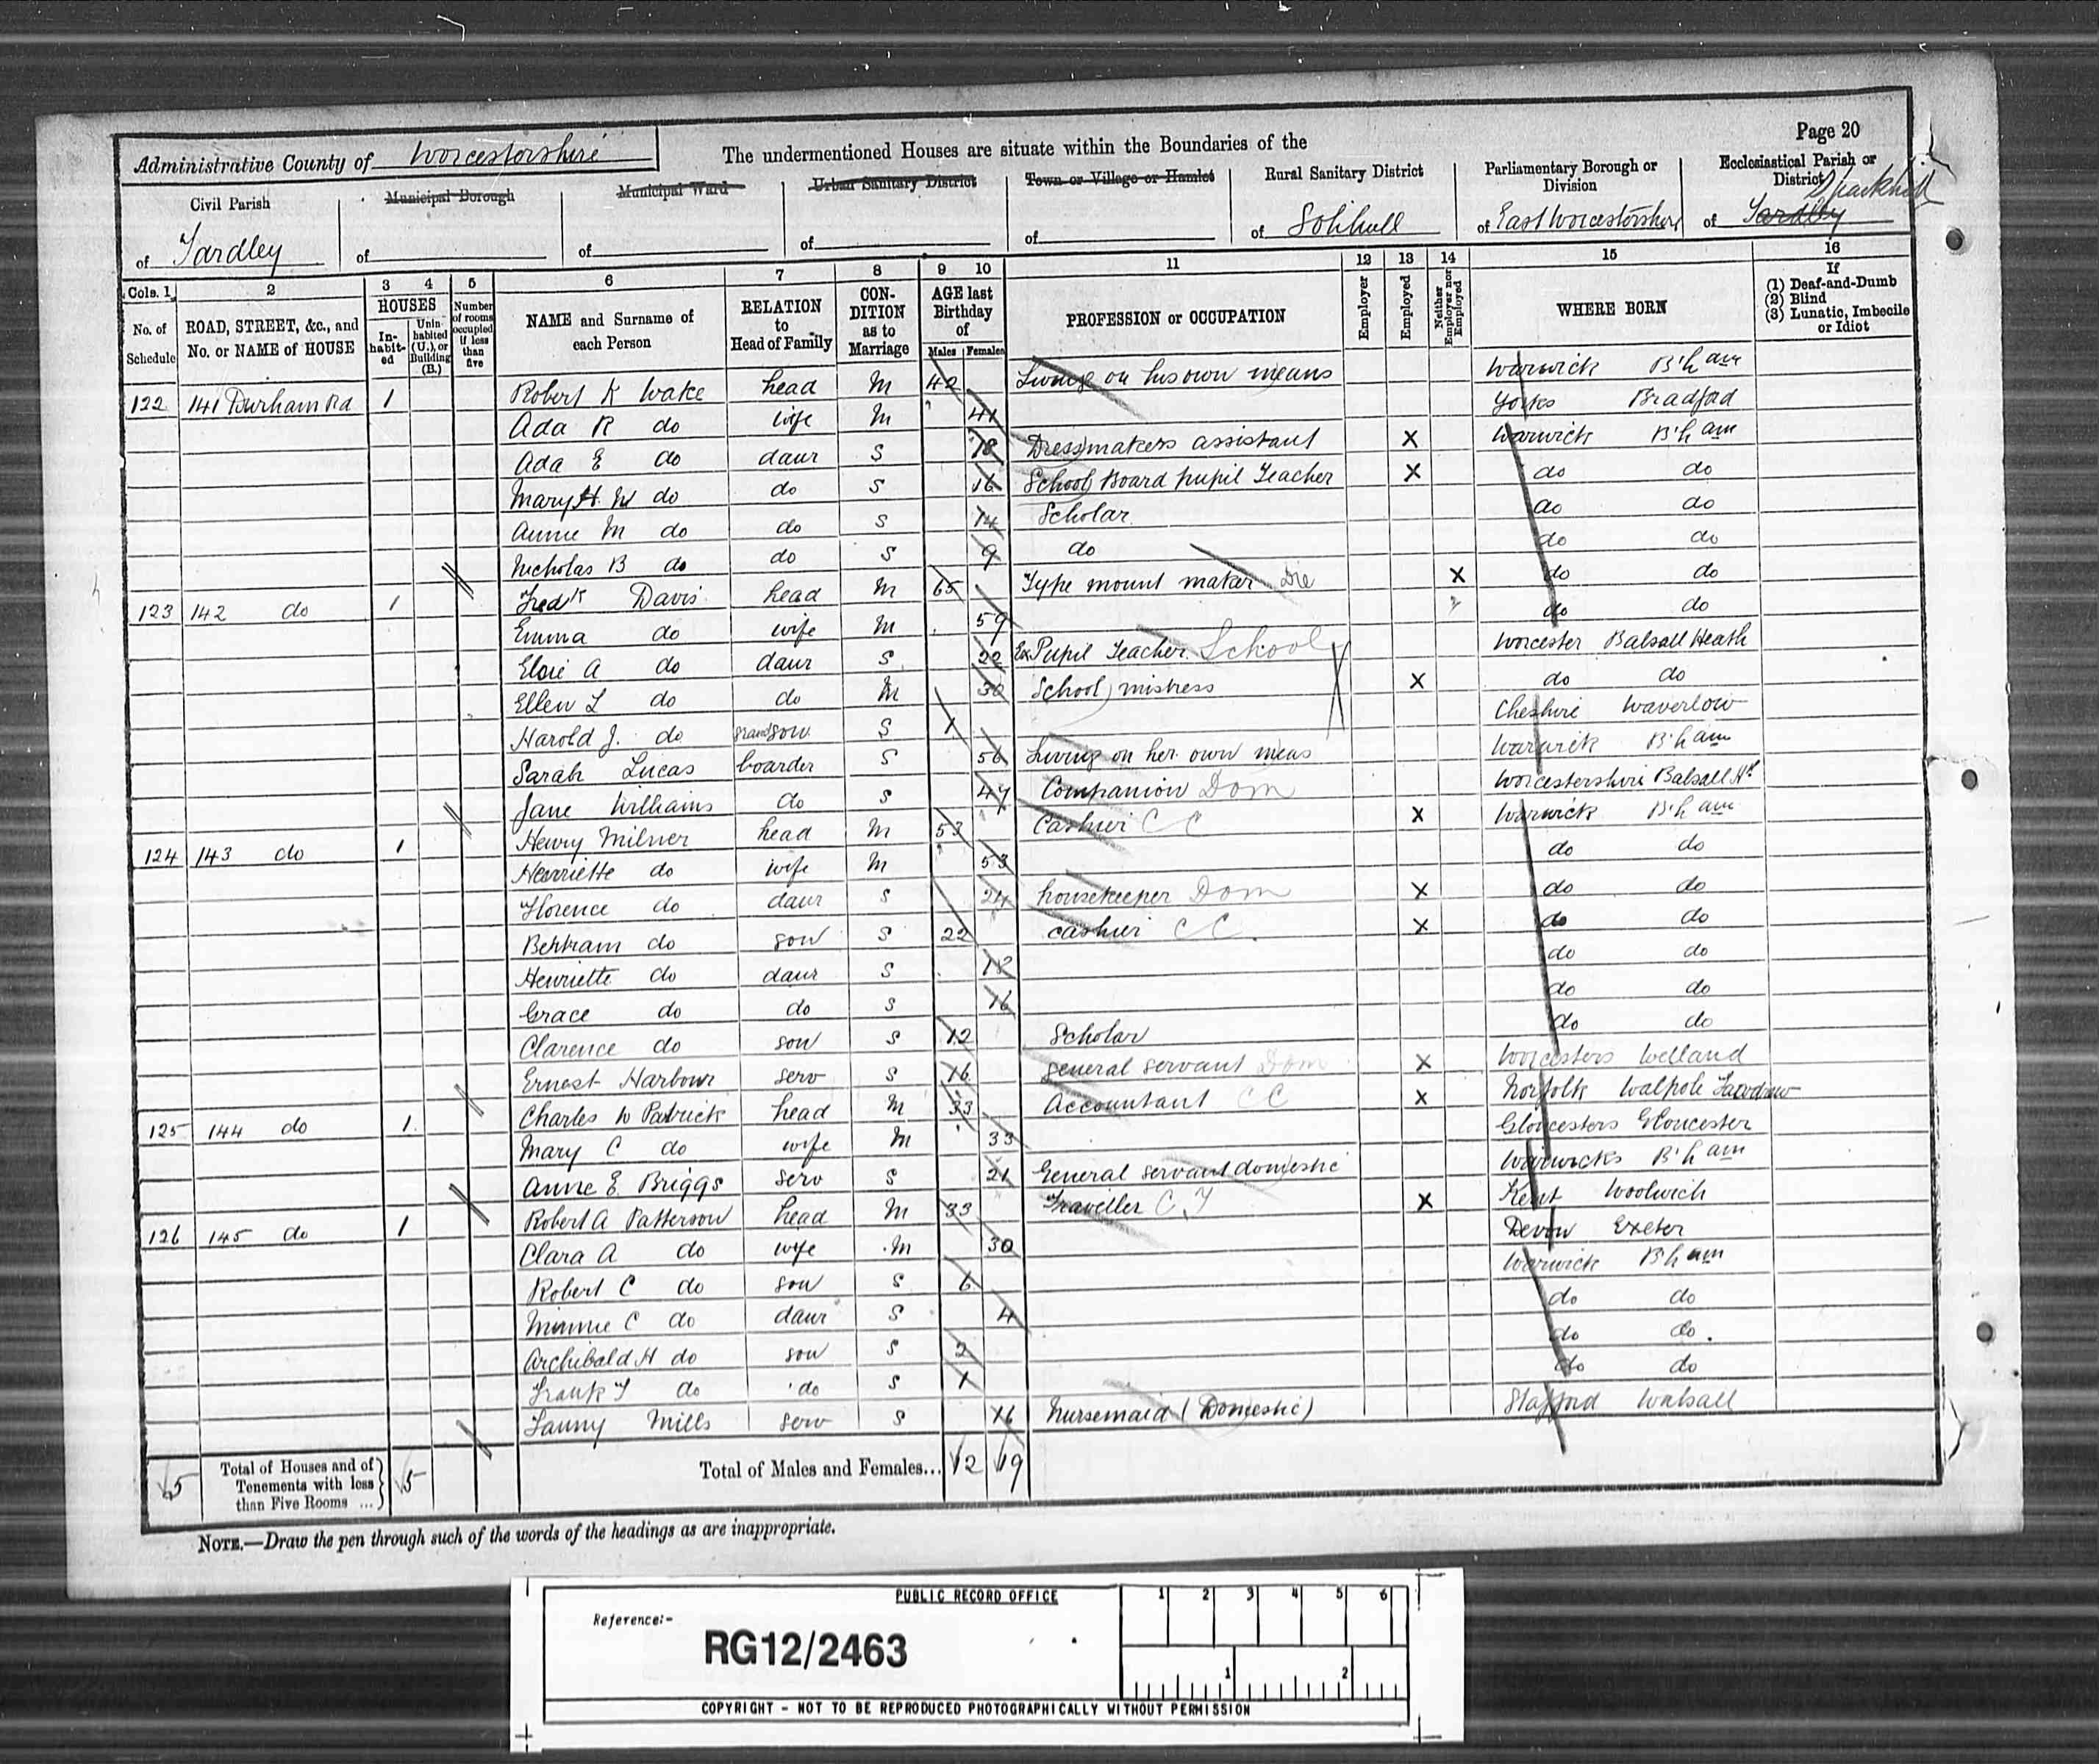 Page 20
Administrative County of Worcestershire
The undermentioned Houses are situate within the Boundaries of the
Civil Parish of Yardley
Municipal Borough of
Municipal Ward of
Urban Sanitary District of
Town or Village or Hamlet of
Rural Sanitary District of Solihull
Parliamentary Borough or Division of East Worcestershire
Ecclesiastical Parish or District of Yardley Sparkhill
Cols. 1 2 3 4 5 6 7 8 9 10 11 12 13 14 15 16
No. of Schedule
ROAD, STREET, &c., and No. or NAME of HOUSE
HOUSES
In-habit-ed
Unin-habited (U.), or Building (B.)
Number of rooms occupied if less than five
NAME and Surname of each Person
RELATION to Head of Family
CON-DITION as to Marriage
AGE last Birthday of
Males Females
PROFESSION or OCCUPATION
Employer
Employed
Neither Employer nor Employed
WHERE BORN
If (1) Deaf-and-Dumb (2) Blind (3) Lunatic, Imbecile or Idiot
122 141 Durham Rd 1 Robert K Wake head M 42 Living on his own means Warwick B'ham
Ada R do wife M 41 Yorks Bradford
Ada E do daur S 18 Dressmakers assistant X Warwick B'ham
Mary H W do do S 16 School Board pupil Teacher X do do
Annie M do do S 14 Scholar do do
Nicholas B do do S 9 do do do
123 142 do 1 Fredk Davis head M 65 Type mount maker Die X do do
Emma do wife M 59 do do
Elsie A do daur S 22 Ex Pupil Teacher School Worcester Balsall Heath
Ellen L do do M 30 School mistress X do do
Harold J. do grandson S 1 Cheshire Waverlow
Sarah Lucas boarder S 56 Living on her own meas Warwick B'ham
Jane Williams do S 47 Companion Dom Worcestershire Balsall Ht
124 143 do 1 Henry Milner head M 53 Cashier C C X Warwick B'ham
Henriette do wife M 53 do do
Florence do daur S 24 housekeeper Dom X do do
Bertram do son S 22 cashier C C. X do do
Henriette do daur S 18 do do
Grace do do S 16 do do
Clarence do son S 12 Scholar do do
Ernest Harbour serv S 16 general servant Dom X Worcesters Welland
125 144 do 1. Charles W Patrick head M 33 Accountant C C X Norfolk Walpole
Mary C do wife M 33 Gloucesters Gloucester
Anne E Briggs serv S 21 General servant domestic Warwicks B'ham
126 145 do 1 Robert A Patterson head M 33 Traveller C.T X Kent Woolwich
Clara A do wife M 30 Devon Exeter
Robert C do son S 6 Warwick B'ham
Minnie C do daur S 4 do do
Archibald H do son S 2 do do.
Frank T do do S 1 do do
Fanny Mills serv S 16 Nursemaid (Domestic) Stafford Walsall
5 Total of Houses and of Tenements with less than Five Rooms ... 5 Total of Males and Females... 12 19
NOTE.—Draw the pen through such of the words of the headings as are inappropriate.
PUBLIC RECORD OFFICE
1 2 3 4 5 6
Reference:-
RG12/2463
1 2
COPYRIGHT - NOT TO BE REPRODUCED PHOTOGRAPHICALLY WITHOUT PERMISSION